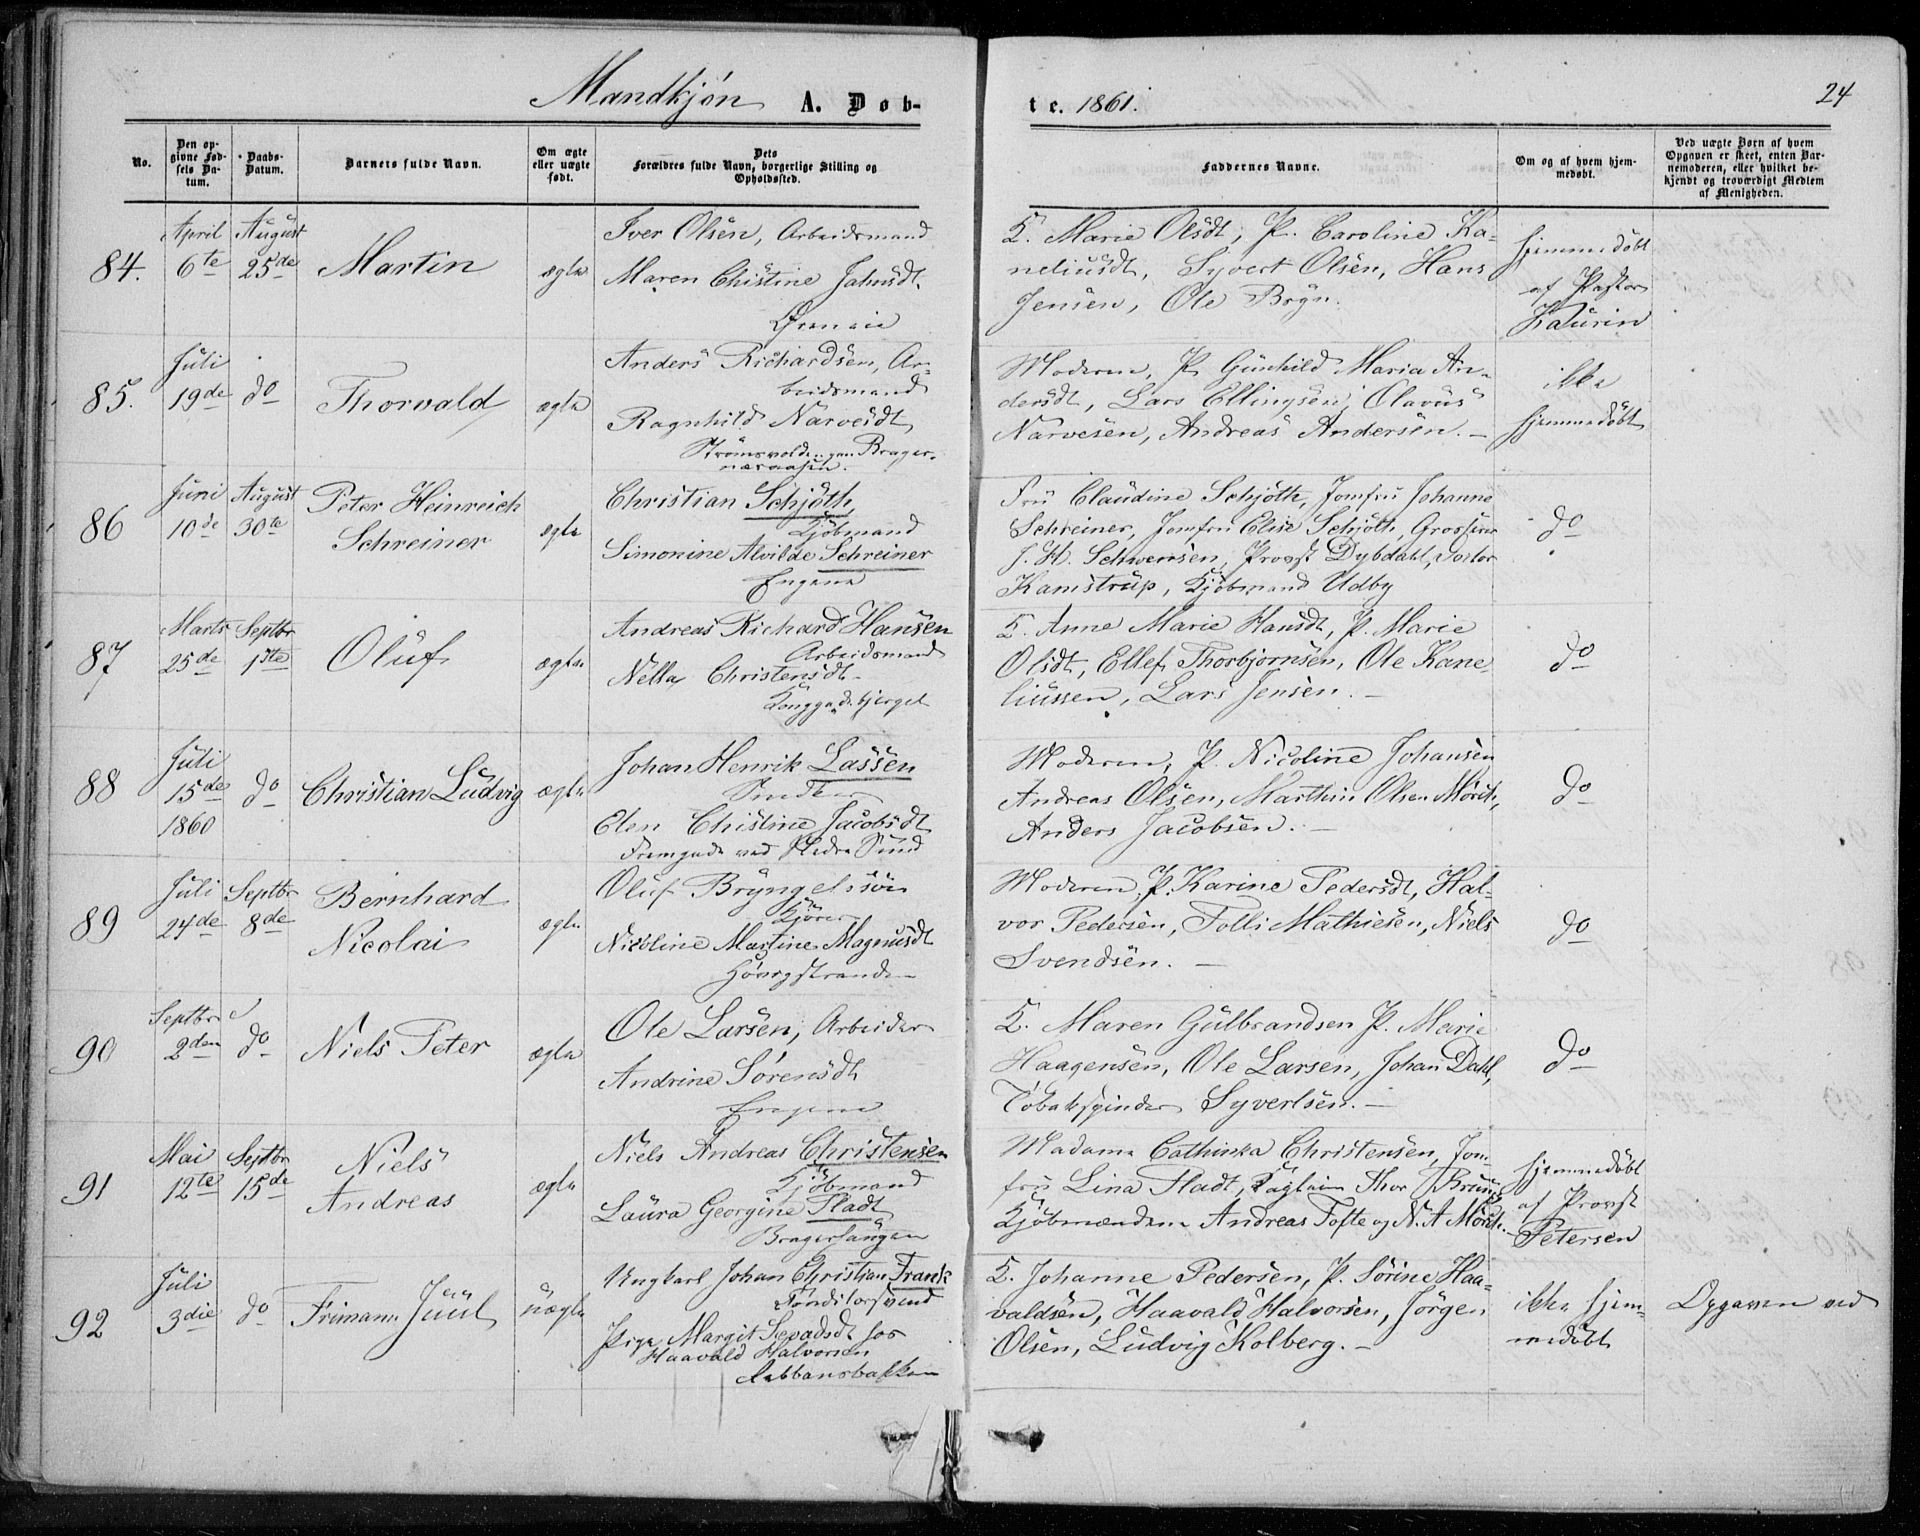 Mandkjøn A. Døb-
te. 1861.
24
No.
Den op-
givne Fød-
sels Da-
tum.
Daabs-
Datum.
Barnets fulde Navn.
Om ægte
eller uægte
født.
Dets
Forældres fulde Navn, borgerlige Stilling og
Opholdssted.
Faddernes Navne.
Om og af hvem hjem-
medøbt.
Ved uægte Børn af hvem
Opgaven er skeet, enten Bar-
nemoderen, eller hvilket be-
kjendt og troværdigt Medlem
af Menigheden.
84.
April
6te
August
25de
Martin
ægte
Iver Olsen, Arbeidsmand
Maren Chistine Jahnsdt.
Q. Marie Olsdt, P. Caroline Ka-
neliusdt, Syvert Olsen, Hans
Jensen, Ole Bryn.
hjemmedöbt
af Pastor
Kaurin
85.
Juli
19de
do
Thorvald
ægte
Anders Richardsen, Ar-
beidsmand
Ragnhild Narvesdt
Strömsvolden paa Brager-
næsaasen.
Moderen, P. Gunhild Maria An-
dersdt, Lars Ellingsen, Olavus
Narvesen, Andreas Andersen. -
ikke
hjemmedöbt
86
Juni
10de
August
30te
Peter Heinreich
Schreiner
ægte
Christian Schjöth,
Kjöbmand
Simonine Alvilde Schreiner
Engene
Fru Claudine Schjöth, Jomfru Johanne
Schreiner, Jomfru Elise Schjöth, Grosserer
J. H. Schwensen, Provst Dybdahl, Doctor
Kamstrup, Kjöbmand Udby
do
87
Marts
25de
Septbr
1ste
Oluf
ægte
Andreas Richard Hansen
Arbeidsmand
Nella Christensdt
Konggadebjerget
Q. Anne Marie Hansdt, P. Marie
Olsdt, Ellef Thorbjørnsen, Ole Kane-
liussen, Lars Jensen. -
do
88
Juli
15de
1860
do
Christian Ludvig
ægte
Johan Henrik Lassen
Elen Chistine Jacobsdt
Fremgade ved Nedre Sund
Moderen, P. Nicoline Johansen
Andreas Olsen, Marthin Olsen Mörch,
Anders Jacobsen. -
do
89
Juli
24de
Septbr
8de
Bernhard
Nicolai
ægte
Oluf Bryngelssön
Kjörer
Nicoline Martine Magnusdt
Moderen, P. Karine Pedersdt, Hal-
vor Pedersen, Tolli Mathiesen, Niels
Svendsen. -
do
90
Septbr
2den
do
Niels Peter
ægte
Ole Larsen, Arbeider
Andrine Sörensdt
Engene
Q. Maren Gulbrandsen P. Marie
Haagensen, Ole Larsen, Johan Dahl,
Tobakspinder Syvertsen. -
do
91
Mai
12te
Septbr
15de
Niels
Andreas
ægte
Niels Andreas Christensen
Kjöbmand
Laura Georgine Fladt
Bragersöen
Madame Cathinka Christensen, Jom-
fru Lina Fladt, Captain Thor Bruun
Kjöbmændene Andreas Tofte og N. A Mörch.
hjemmedöbt
af Provst
Petersen
92
Juli
3die
do
Frimann Juul
uægte
Ungkarl Johan Christian Frank
Konditorsvend
Pige Margit Sevadsdt hos
Haavald Halvorsen
Q. Johanne Pedersen, P. Sörine Haa-
valdsen, Haavald Halvorsen, Jörgen
Olsen, Ludvig Kolberg. -
ikke hjem-
medöbt
Opgaven ved